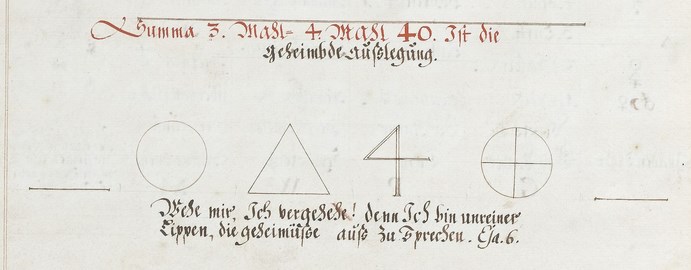 Summa 3. Mahl 4. Mahl 40. Ist die
geheimbde Außlegung.
4
Wehe mir, Ich vergehehe! denn Ich bin unreiner
Lippen, die geheimüße auß zu Sprechen. Esa. 6.